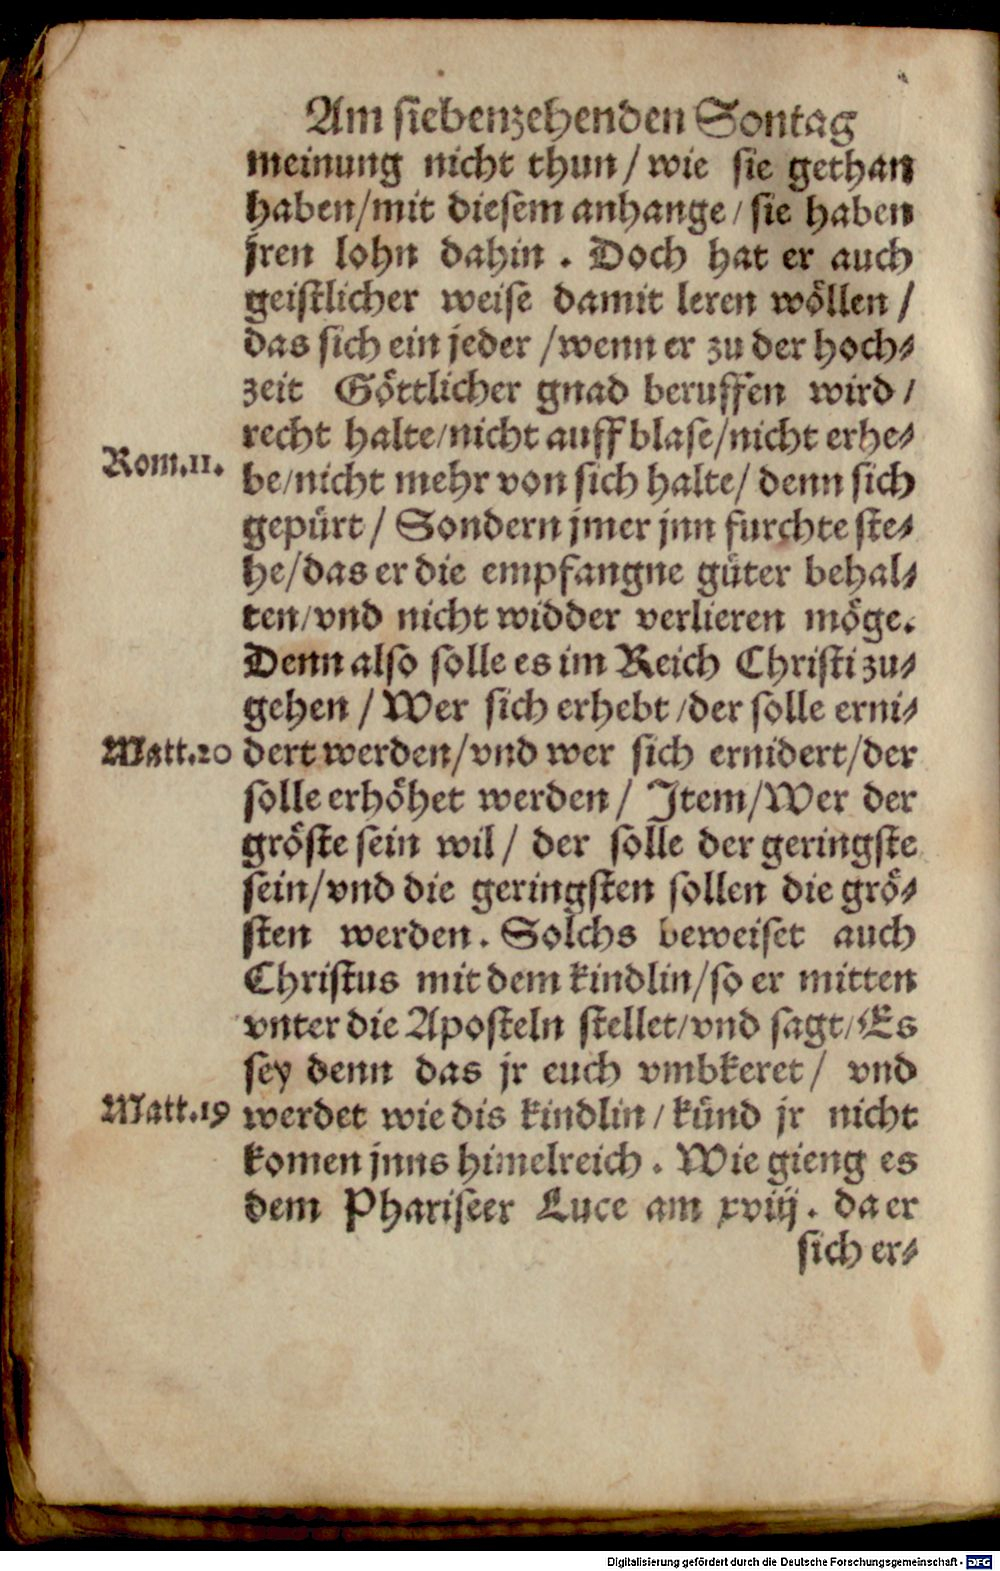 Am siebenzehenden Sontag
meinung nicht thun / wie sie gethan
haben/mit diesem anhange / sie haben
jren lohn dahin . Doch hat er auch
geistlicher weise damit leren wöllen /
das sich ein jeder /wenn er zu der hoch⸗
zeit Göttlicher gnad beruffen wird /
recht halte/nicht auffblase/nicht erhe⸗
Rom.11.
be/nicht mehr von sich halte/ denn sich
gepürt / Sondern jmer jnn furchte ste⸗
he/das er die empfangne güter behal⸗
ten/vnd nicht widder verlieren möge.
Denn also solle es im Reich Christi zu⸗
gehen / Wer sich erhebt /der solle erni⸗
Matt.20
dert werden/vnd wer sich ernidert/der
solle erhöhet werden / Jtem/Wer der
gröste sein wil / der solle der geringste
sein/vnd die geringsten sollen die grö⸗
sten werden. Solchs beweiset auch
Christus mit dem kindlin/so er mitten
vnter die Aposteln stellet/vnd sagt/Es
sey denn das jr euch vmbkeret / vnd
Matt.19
werdet wie dis kindlin / künd jr nicht
komen jnns himelreich . Wie gieng es
dem Phariseer Luce am xviij. da er
sich er⸗
Digitalisierung gefördert durch die Deutsche Forschungsgemeinschaft - DFG